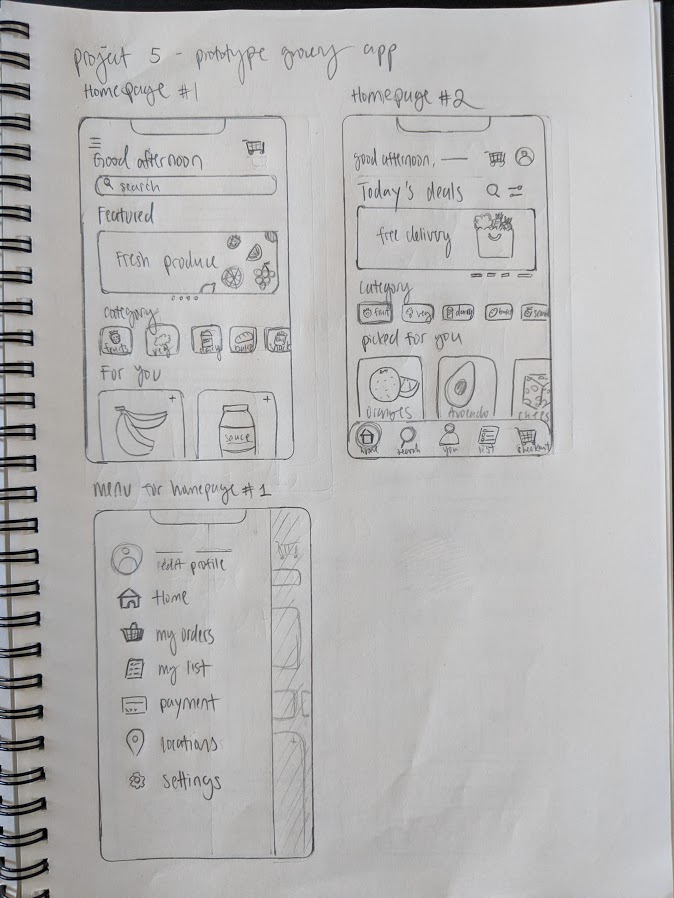 project 5 - prototype grocery app
Homepage #1
Good afternoon
search
Featured
Fresh produce
category
fruits
veg
dairy
For you
sauce
Homepage #2
good afternoon,
Today's deals
free delivery
category
fruit
veg
dairy
picked for you
oranges
Avocado
home
search
you
list
checkout
menu for homepage #1
edit profile
Home
my orders
my list
payment
locations
settings